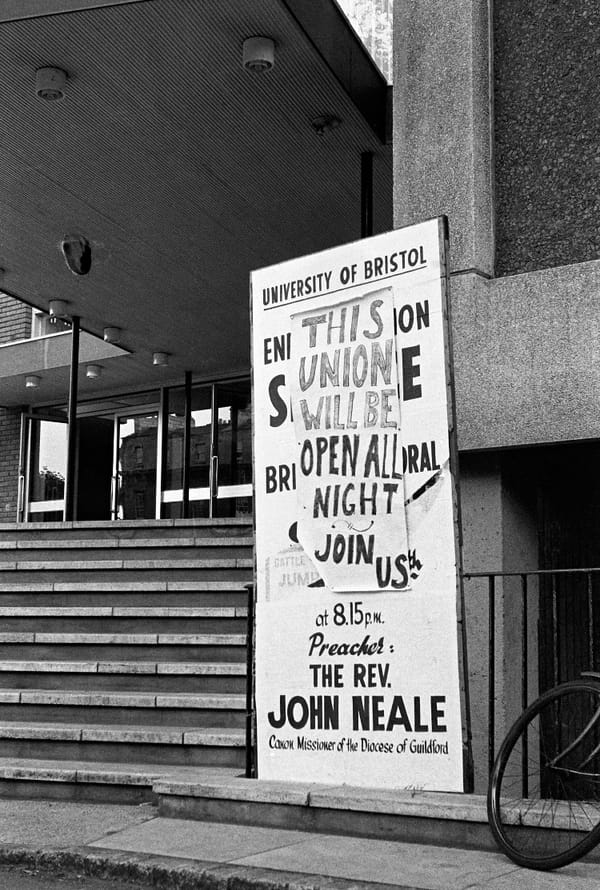 UNIVERSITY OF BRISTOL
THIS
UNION
WILL BE
OPEN ALL
NIGHT
JOIN
US
at 8.15 p.m.
Preacher:
THE REV.
JOHN NEALE
Canon Missioner of the Diocese of Guildford
ENI ON
S E
BRI ORAL
th
BATTLE
JUMP